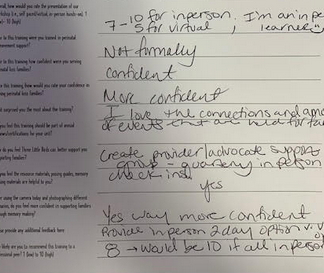 how would you rate the presentation of our
7-10 for inperson. I'm an inpe
5 for virtual, learner"
to this training were you trained in perinatal
Not formally
to this training how confident were you
confident
this training how would you rate your confidence in
perinatal families?
More confident
surprised you the most about the training?
I love the connections and amo
of events that are held for fa
you feel this training should be part of annual
for your unit?
do you feel Three Little Birds can better support you
families?
Create provider/advocate support
group - quarterly inperson
check ins!
you feel the resource materials, passing guides, memory
making materials are helpful to you?
yes
using the camera today and photographing different
do you feel confident in supporting families
memory making?
Yes way more confident
provide any additional feedback here:
Provide inperson 2 day option v. v
likely are you to recommend this training to a
1 (low) to 10 (high)
8 → would be 10 if all inperso